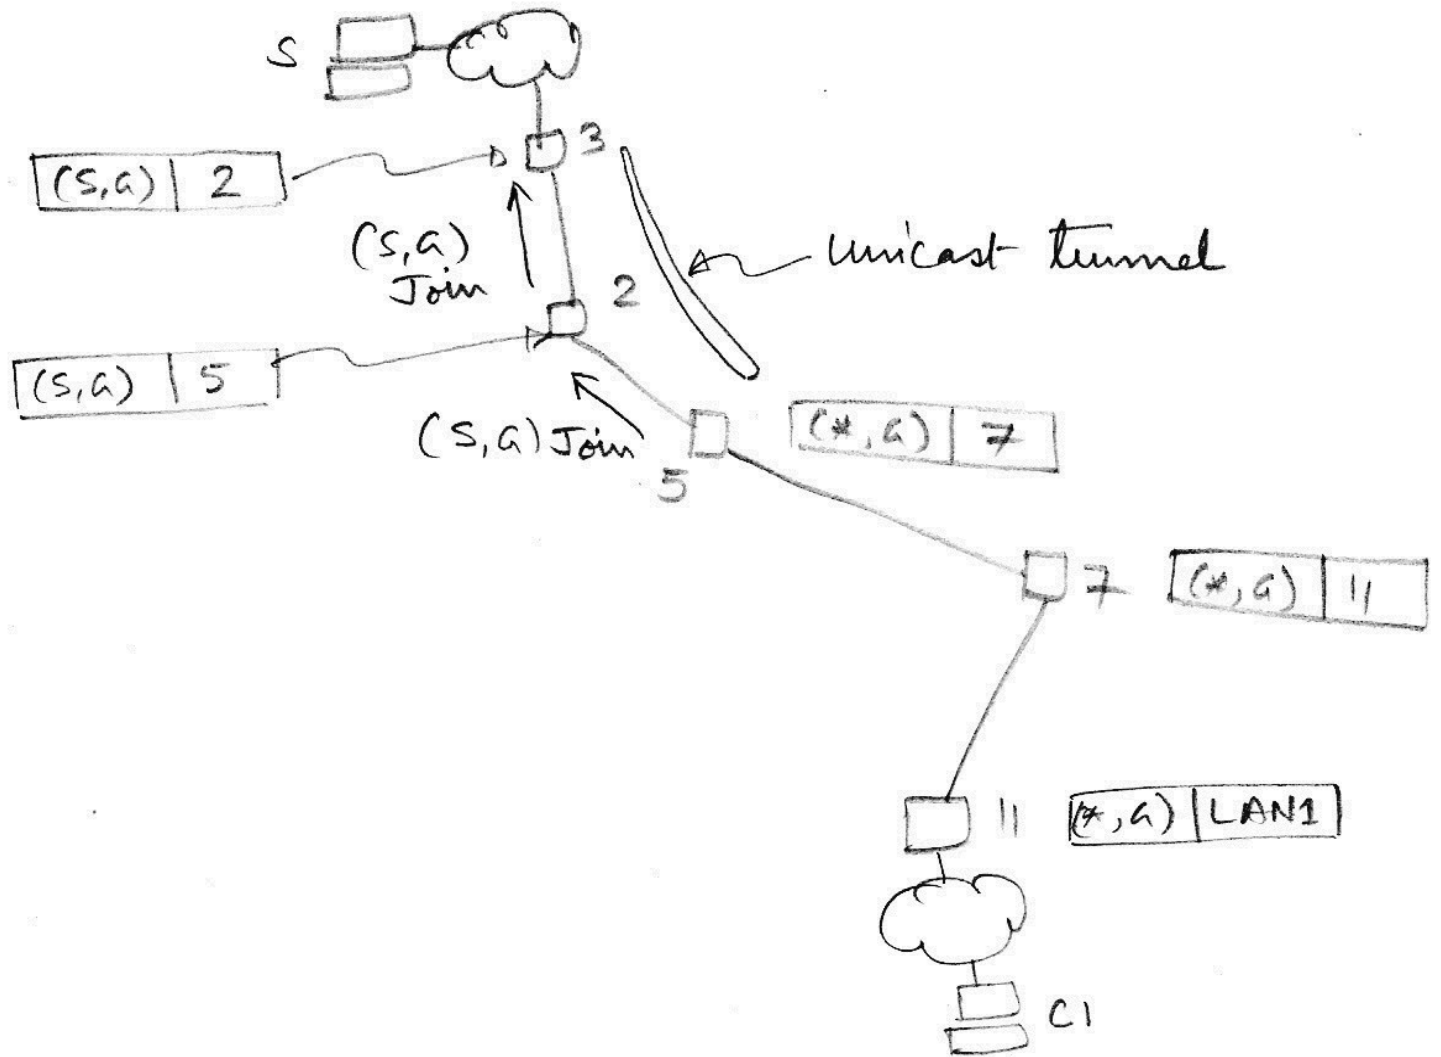 S
3
(S,G) 2
(S,G)
Join
unicast tunnel
2
(S,G) 5
(S,G) Join
5
(*,G) 7
7
(*,G) 11
11
(*,G) LAN1
C1